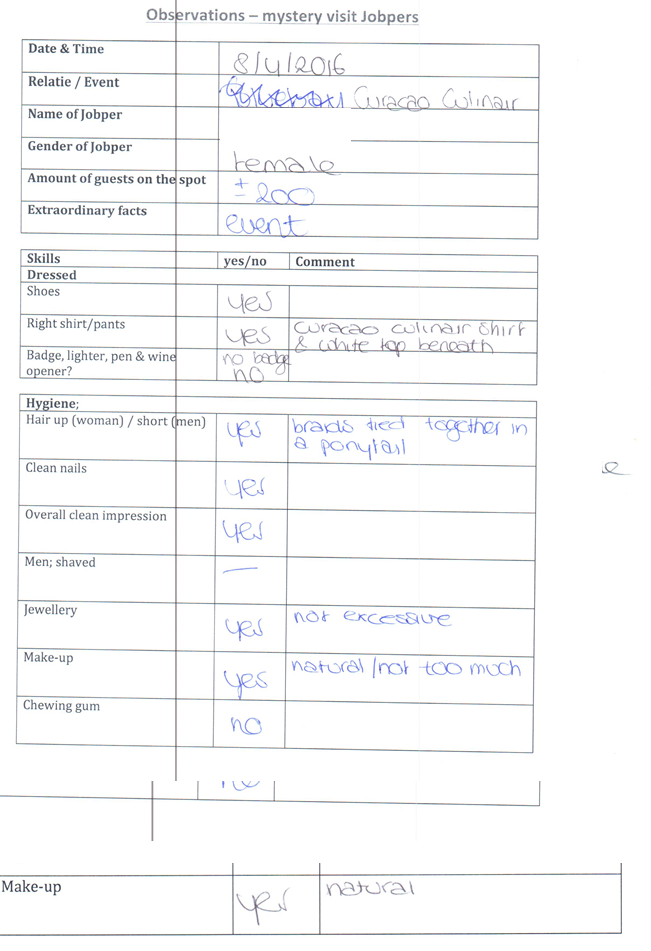 Observations – mystery visit Jobpers
Date & Time 8/4/2016
Relatie / Event Curacao Culinair
Name of Jobper
Gender of Jobper female
Amount of guests on the spot ± 200
Extraordinary facts event
Skills yes/no Comment
Dressed
Shoes yes
Right shirt/pants yes curacao culinair shirt
& white top beneath
Badge, lighter, pen & wine no badge
opener? no
Hygiene;
Hair up (woman) / short (men) yes braids tied together in
a ponytail
Clean nails yes
Overall clean impression yes
Men; shaved —
Jewellery yes not excessive
Make-up yes natural/not too much
Chewing gum no
Make-up yes natural